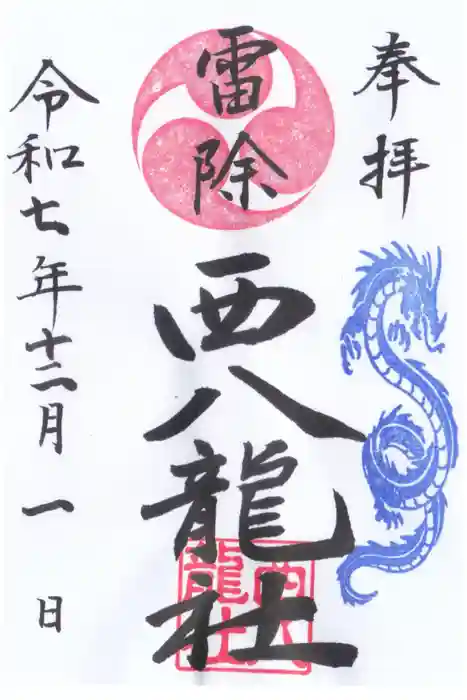 奉拝
雷除
西八龍社
西八龍社
令和七年十二月一日